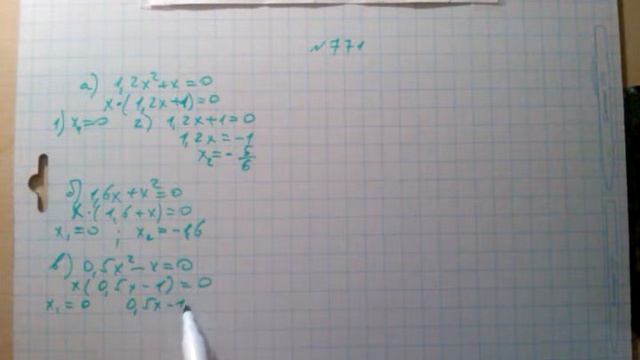 №771
а) 1,2x²+x=0
x·(1,2x+1)=0
1) x₁=0 2) 1,2x+1=0
1,2x=-1
x₂=-5/6
б) 1,6x+x²=0
x·(1,6+x)=0
x₁=0 ; x₂=-1,6
в) 0,5x²-x=0
x(0,5x-1)=0
x₁=0 0,5x-1